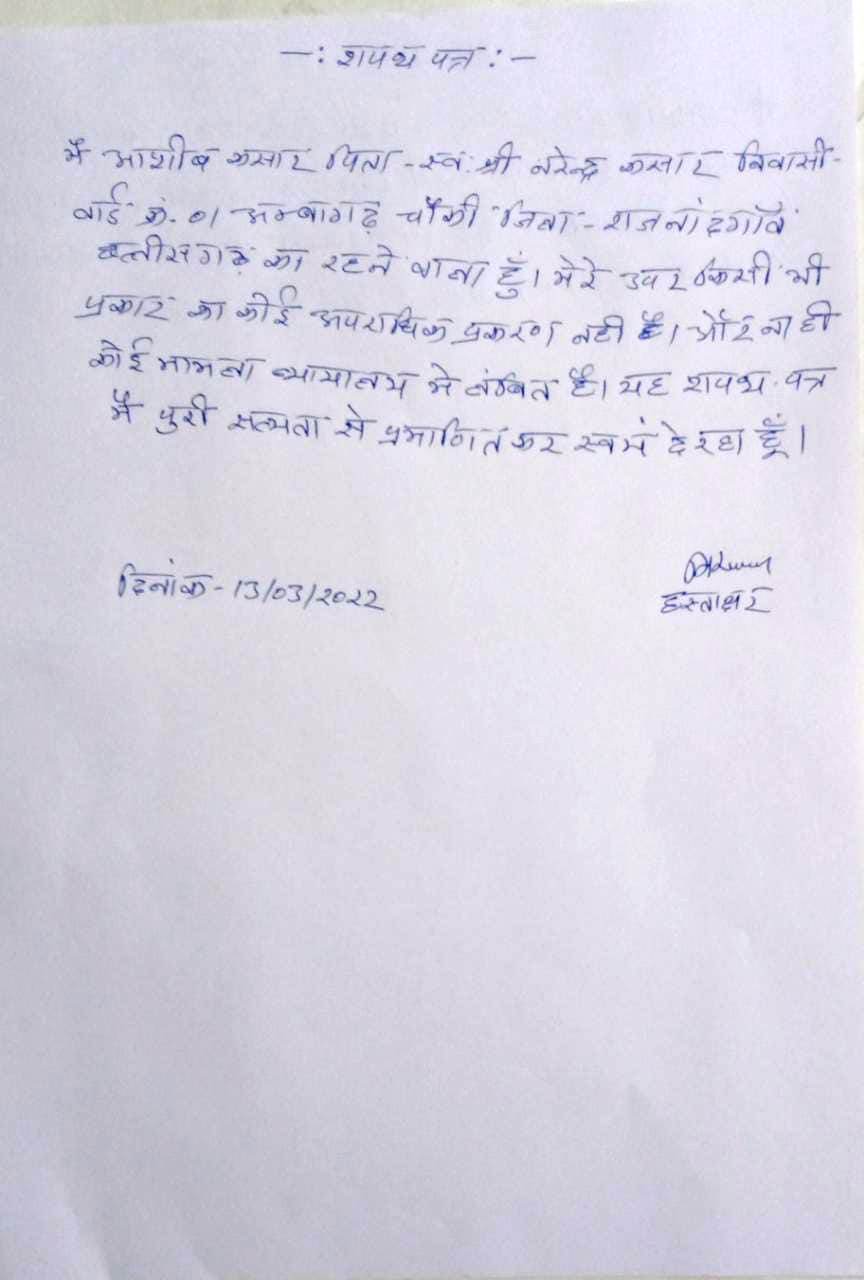 -: शपथ पत्र :-
मैं आशीष कसार पिता - स्व. श्री नरेन्द्र कसार निवासी-
वार्ड क्रं. 01 अम्बागढ़ चौकी जिला - राजनांदगाँव
छत्तीसगढ़ का रहने वाला हुँ। मेरे उपर किसी भी
प्रकार का कोई अपराधिक प्रकरण नही है। और ना ही
कोई मामला न्यायालय मे लंबित है। यह शपथ पत्र
मैं पुरी सत्यता से प्रमाणित कर स्वयं दे रहा हूँ।
दिनांक - 13/03/2022
हस्ताक्षर